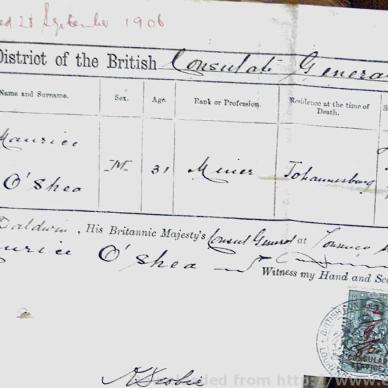 28 September 1906
District of the British Consulate General
Name and Surname. Sex. Age. Rank or Profession. Residence at the time of Death.
Maurice
O'Shea M. 31 Miner Johannesburg
Baldwin, His Britannic Majesty's Consul General at Lourenço
Maurice O'Shea
Witness my Hand and Se
BRITISH
CONSULA
SERVICE
from http